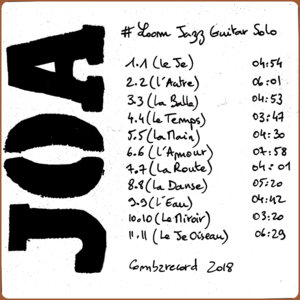 JOA
# Loom Jazz Guitar Solo
1.1 (Le Je) 04:54
2.2 (L'Autre) 06:01
3.3 (La Balle) 04:53
4.4 (Le Temps) 03:47
5.5 (La Main) 04:30
6.6 (L'Amour) 07:58
7.7 (La Route) 04:01
8.8 (La Danse) 05:20
9.9 (L'Eau) 04:42
10.10 (Le Miroir) 03:20
11.11 (Le Je Oiseau) 06:29
Combrecord 2018